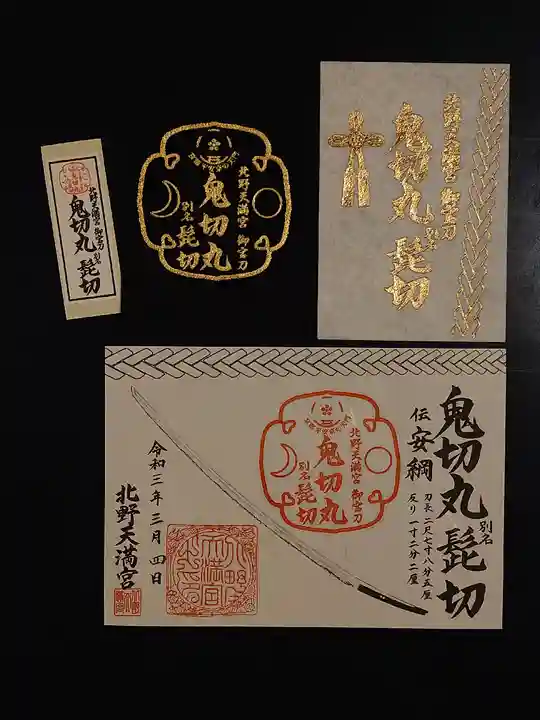 北野天満宮 御宝刀
鬼切丸
別名
髭切
北野天満宮 御宝刀
鬼切丸
別名
髭切
北野天満宮 御宝刀
鬼切丸
別名
髭切
鬼切丸
別名
髭切
伝安綱
刃長 二尺七寸八分五厘
反り 一寸二分二厘
北野天満宮 御宝刀
鬼切丸
別名
髭切
令和三年三月四日
北野天満宮